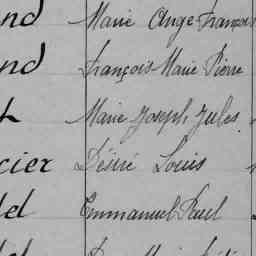 nd Marie Ange François
nd François Marie Pierre
Marie Joseph Jules
cier Désiré Louis
del Emmanuel Paul